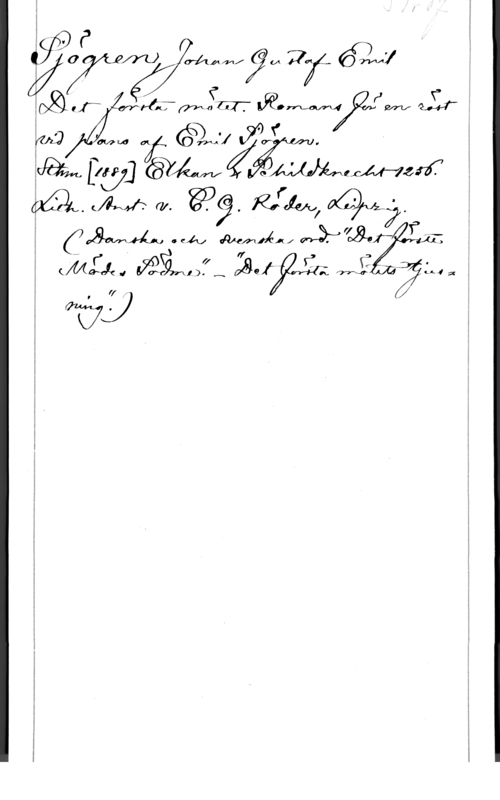 Sjögren, Johan Gustaf Emil
Det första mötet. Romans för en röst
vid piano af Emil Sjögren.
Sthm [1889] Elkan & Schildknecht 1256.
Lith. Anst. v. C. G. Röder, Leipzig.
(Danska och svenska ord. "Det förste
Mödes Södme". - "Det första mötets tjus=
ning".)